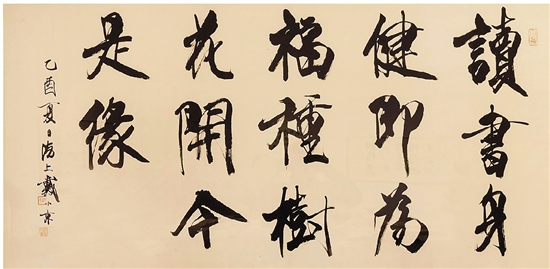 讀書身
健即為
福種樹
花開今
是緣
乙酉夏日海上戴小京